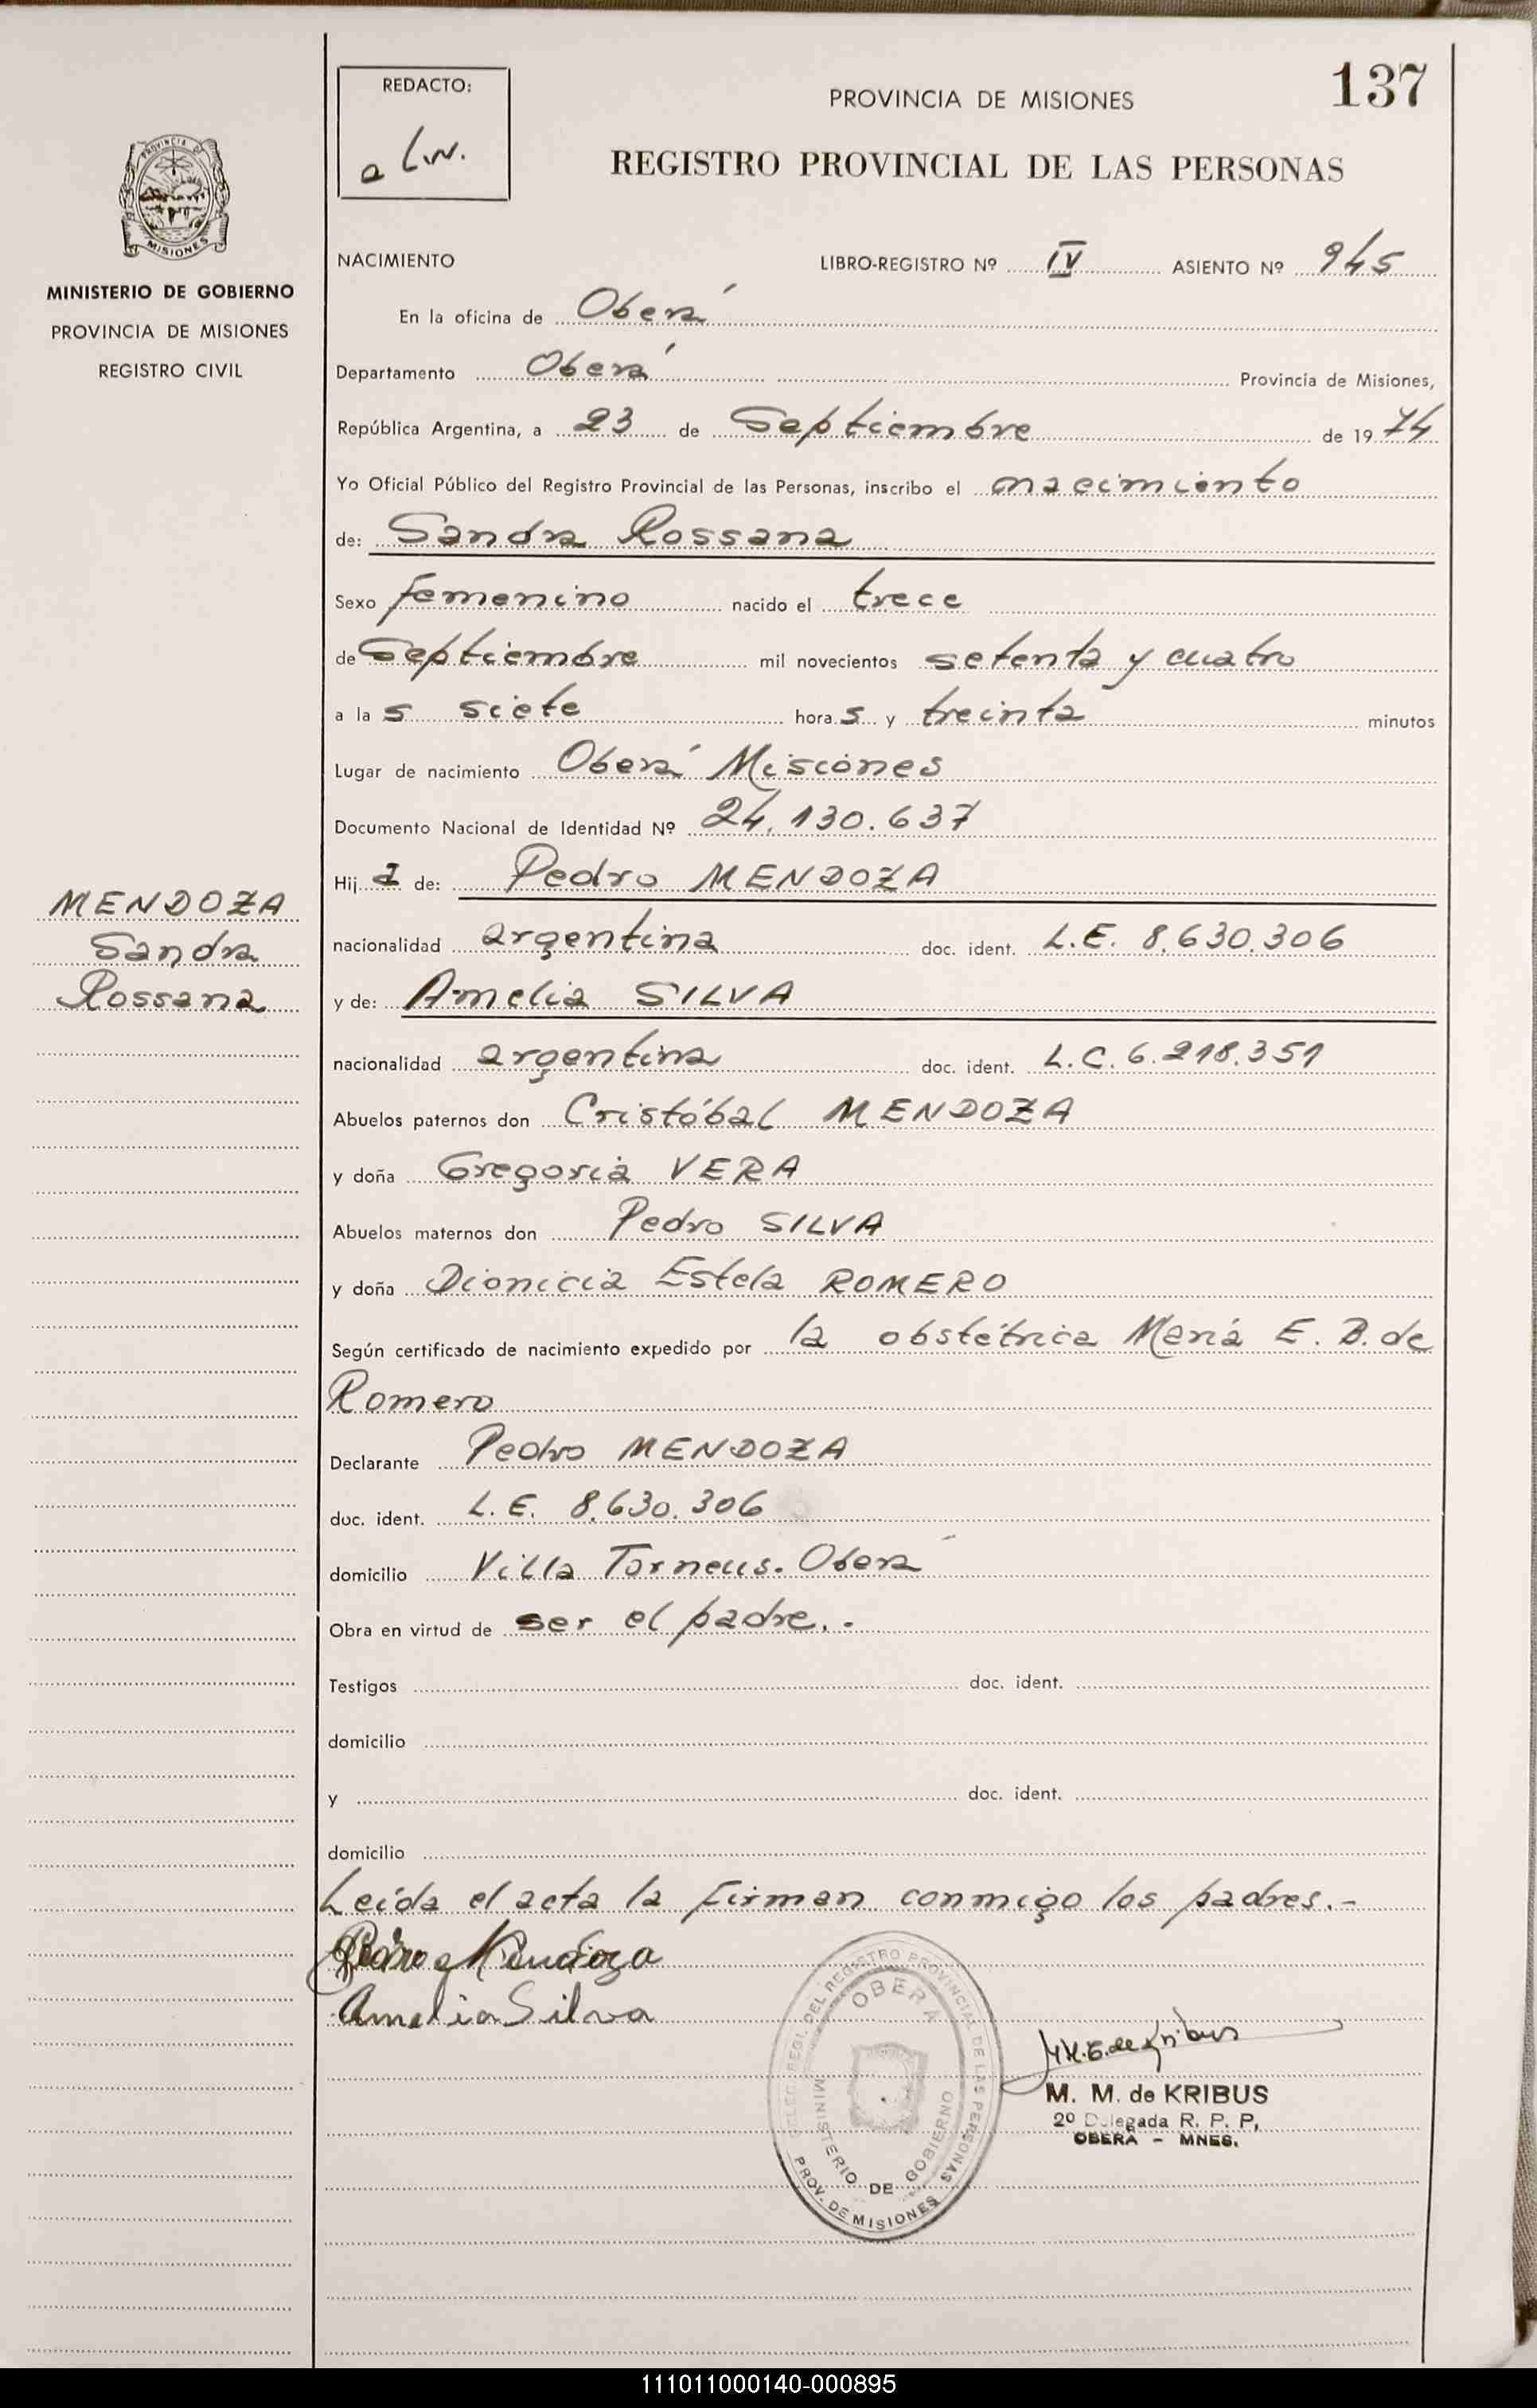 REDACTO:
PROVINCIA DE MISIONES
137
REGISTRO PROVINCIAL DE LAS PERSONAS
PROVINCIA DE
MISIONES
MINISTERIO DE GOBIERNO
PROVINCIA DE MISIONES
REGISTRO CIVIL
NACIMIENTO LIBRO-REGISTRO Nº IV ASIENTO Nº 945
En la oficina de Oberá
Departamento Oberá Provincia de Misiones,
República Argentina, a 23 de Septiembre de 1974
Yo Oficial Público del Registro Provincial de las Personas, inscribo el nacimiento
de: Sandra Rossana
Sexo femenino nacido el trece
de Septiembre mil novecientos setenta y cuatro
a las siete horas y treinta minutos
Lugar de nacimiento Oberá Misiones
Documento Nacional de Identidad Nº 24.130.637
Hija de: Pedro MENDOZA
MENDOZA
Sandra
Rossana
nacionalidad argentina doc. ident. L.E. 8.630.306
y de: Amelia SILVA
nacionalidad argentina doc. ident. L.C. 6.218.351
Abuelos paternos don Cristóbal MENDOZA
y doña Gregoria VERA
Abuelos maternos don Pedro SILVA
y doña Dionicia Estela ROMERO
Según certificado de nacimiento expedido por la obstétrica María E. B. de
Romero
Declarante Pedro MENDOZA
doc. ident. L.E. 8.630.306
domicilio Villa Torneus. Oberá
Obra en virtud de ser el padre.-
Testigos doc. ident.
domicilio
y doc. ident.
domicilio
Leída el acta la firman conmigo los padres.-
Pedro Mendoza
Amelia Silva
REGISTRO PROVINCIAL DE LAS PERSONAS
OBERA
MINISTERIO DE GOBIERNO
PROV. DE MISIONES
M. M. de KRIBUS
2º Delegada R. P. P.
OBERA - MNES.
111011000140-000895